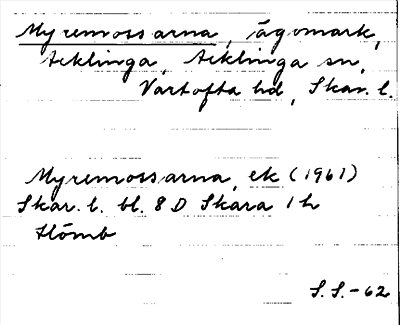 Myremossarna, ägomark,
Acklinga, Acklinga sn,
Vartofta hd, Skar. l.
Myremossarna, ek (1961)
Skar. l. bl. 8 D Skara 1 h
Hömb
S.S.-62